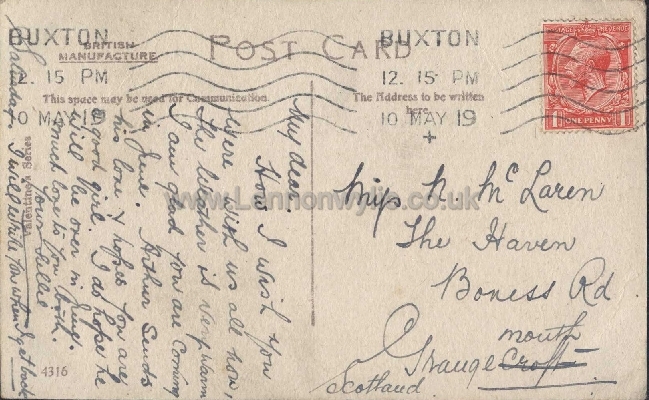 BUXTON
12. 15 PM
10 MAY 19
POST CARD
BRITISH
MANUFACTURE
BUXTON
12. 15 PM
10 MAY 19
This space may be used for Communication.
The Address to be written
here.
POSTAGE & REVENUE
ONE PENNY
Valentine's Series
4316
www.Lennonwylie.co.uk
Saturday
My dear.
How I wish you
were with us all now,
the weather is very warm
I am glad you are coming
in June. Arthur sends
his love & hopes you are
a good girl. I do hope he
will be over in June.
much love to you both.
Your Nellie
I will write you when I get back
Miss N. McLaren
The Haven
Boness Rd
Grange Croft
mouth
Scotland